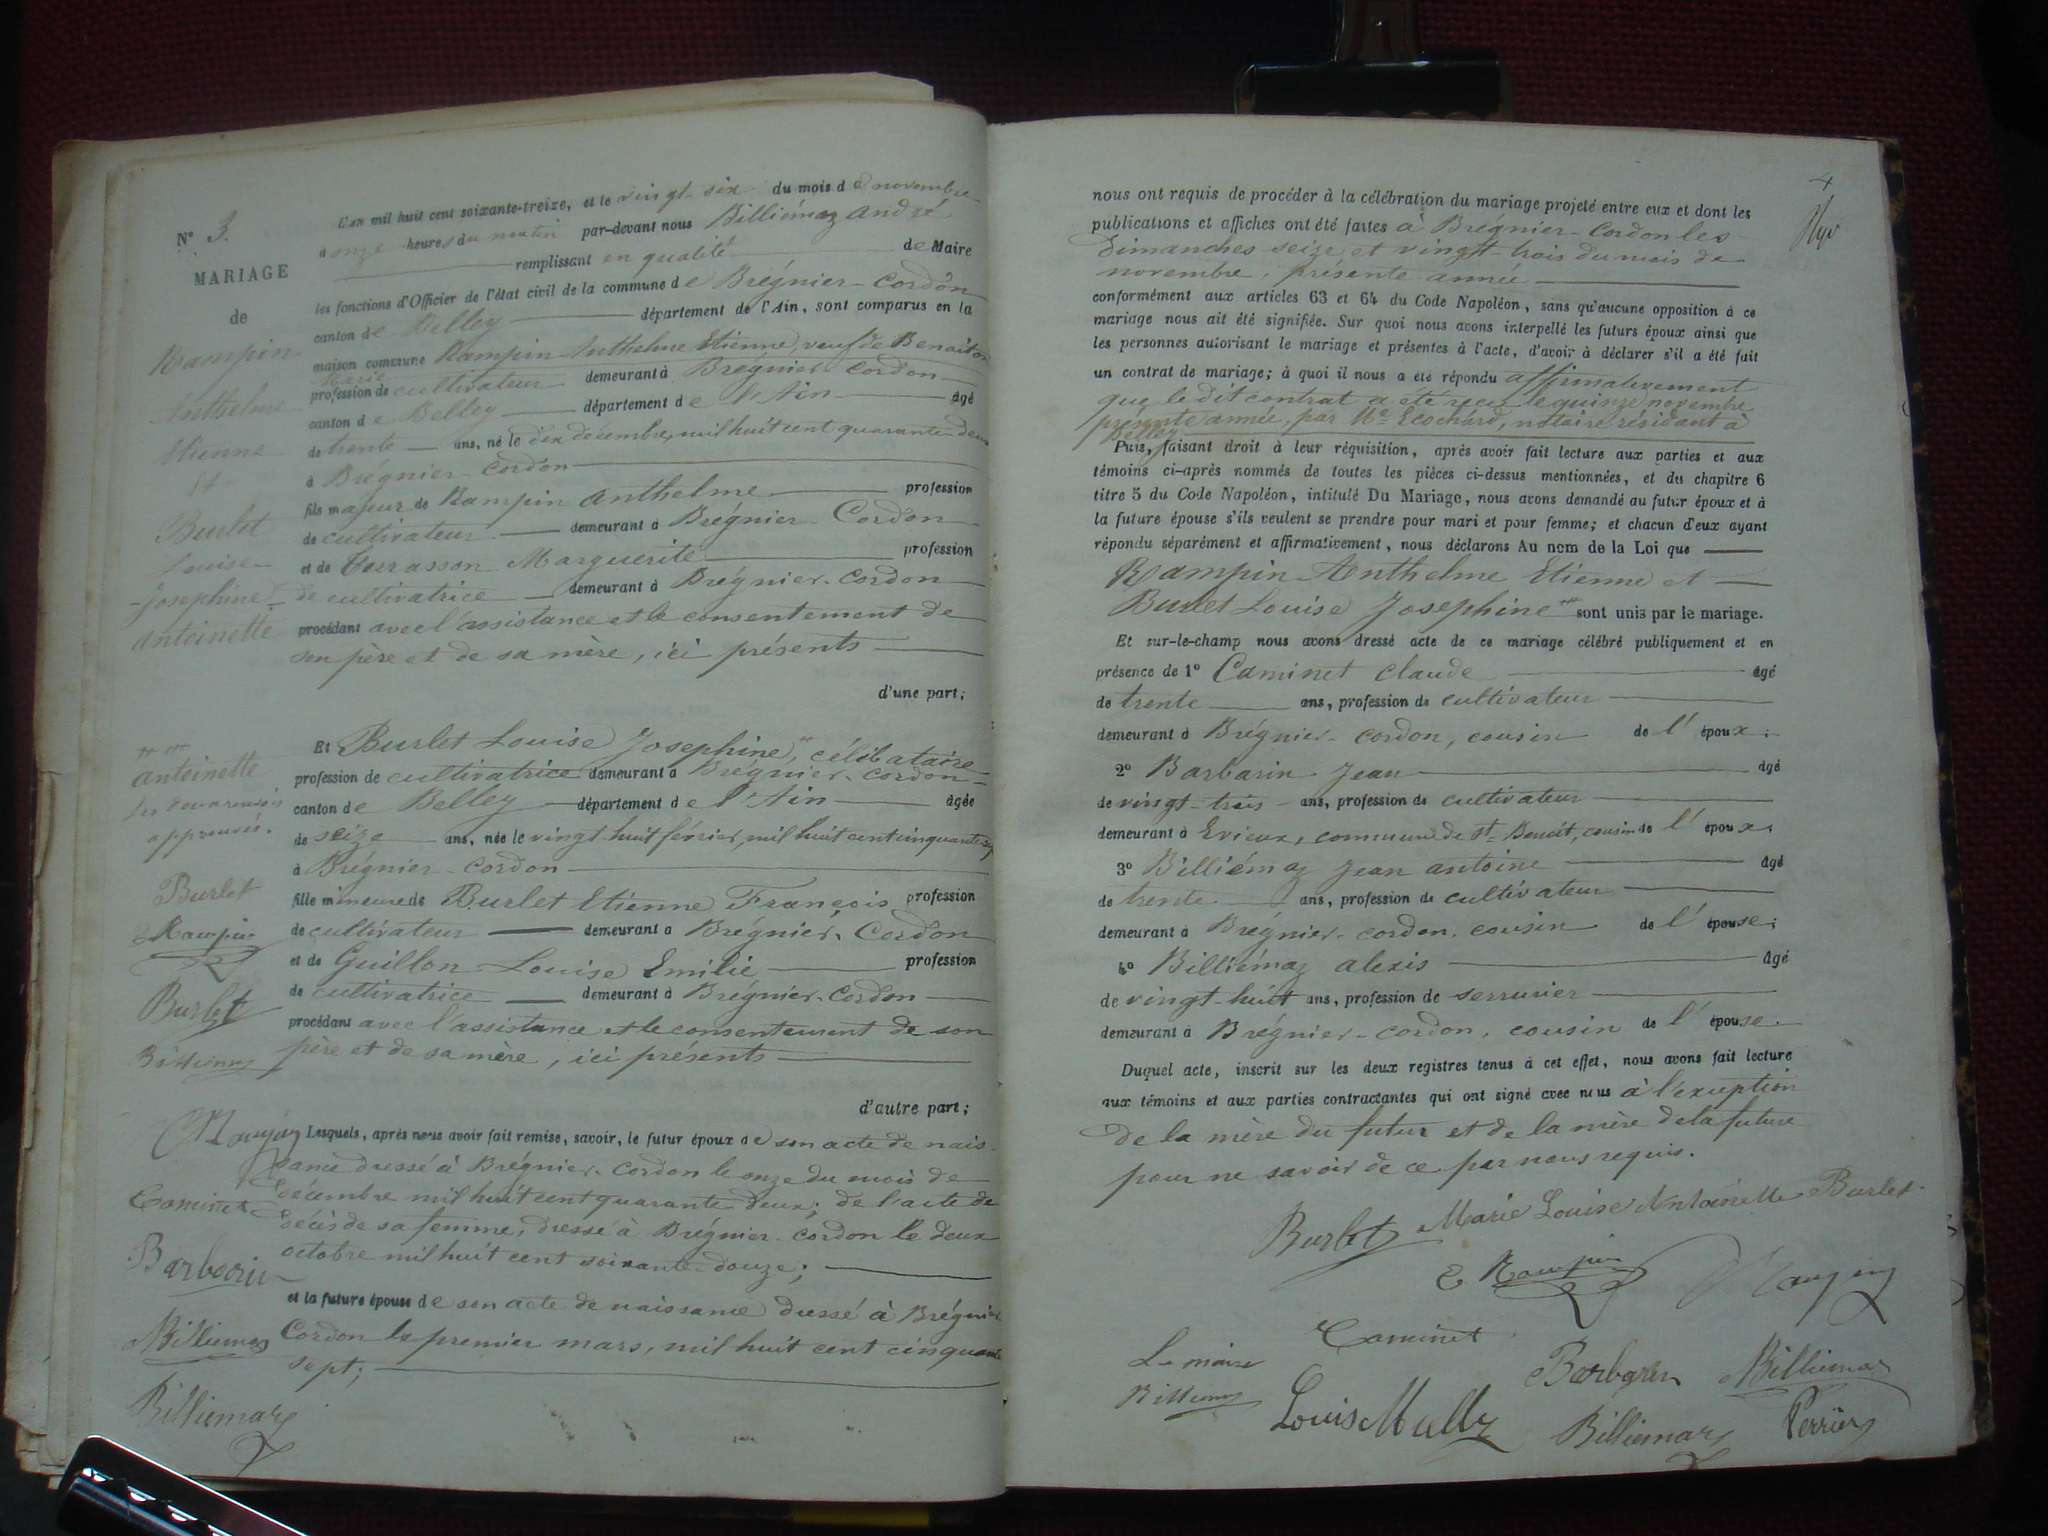 N° 3.
MARIAGE
de
Rampin
Anthelme
Etienne
et
Burlet
Louise
Josephine
antoinette
antoinette
approuvés.
Burlet
E Rampin
Burlet
Billiemaz
Caminet
Barbarin
Billiemaz
Billiemaz
L'an mil huit cent soixante-treize, et le vingt-six du mois de novembre
à onze heures du matin par-devant nous Billiémaz André
remplissant en qualité de Maire
les fonctions d'Officier de l'état civil de la commune de Brégnier-Cordon
canton de Belley département de l'Ain, sont comparus en la
maison commune Rampin Anthelme Etienne, veuf de Benoiton
Marie
profession de cultivateur demeurant à Brégnier-Cordon
canton de Belley département de l'Ain âgé
de trente ans, né le dix décembre, mil huit cent quarante-deux
à Brégnier-Cordon
fils majeur de Rampin Anthelme profession
de cultivateur demeurant à Brégnier-Cordon
et de Marguerite profession
de cultivatrice demeurant à Brégnier-Cordon
procédant avec l'assistance et le consentement de
son père et de sa mère, ici présents
d'une part;
Et Burlet Louise Josephine, célibataire
profession de cultivatrice demeurant à Brégnier-Cordon
canton de Belley département de l'Ain âgée
de seize ans, née le vingt huit février, mil huit cent cinquante sept
à Brégnier-Cordon
fille mineure de Burlet Etienne François profession
de cultivateur demeurant à Brégnier-Cordon
et de Guillon Louise Emilie profession
de cultivatrice demeurant à Brégnier-Cordon
procédant avec l'assistance et le consentement de son
père et de sa mère, ici présents
d'autre part;
Lesquels, après nous avoir fait remise, savoir, le futur époux de son acte de nais-
sance dressé à Brégnier-Cordon le onze du mois de
décembre mil huit cent quarante deux; de l'acte de
décès de sa femme, dressé à Brégnier-Cordon le deux
octobre mil huit cent soixante-douze;
et la future épouse de son acte de naissance dressé à Brégnier
Cordon le premier mars, mil huit cent cinquante
sept;
4
nous ont requis de procéder à la célébration du mariage projeté entre eux et dont les
publications et affiches ont été faites à Brégnier-Cordon les
dimanches seize et vingt-trois du mois de
novembre, présente année
conformément aux articles 63 et 64 du Code Napoléon, sans qu'aucune opposition à ce
mariage nous ait été signifiée. Sur quoi nous avons interpellé les futurs époux ainsi que
les personnes autorisant le mariage et présentes à l'acte, d'avoir à déclarer s'il a été fait
un contrat de mariage; à quoi il nous a été répondu affirmativement
que le dit contrat a été reçu le quinze novembre
présente année, par Me Ecochard, notaire résidant à
Belley
Puis, faisant droit à leur réquisition, après avoir fait lecture aux parties et aux
témoins ci-après nommés de toutes les pièces ci-dessus mentionnées, et du chapitre 6
titre 5 du Code Napoléon, intitulé Du Mariage, nous avons demandé au futur époux et à
la future épouse s'ils veulent se prendre pour mari et pour femme; et chacun d'eux ayant
répondu séparément et affirmativement, nous déclarons Au nom de la Loi que
Rampin Anthelme Etienne et
Burlet Louise Josephine sont unis par le mariage.
Et sur-le-champ nous avons dressé acte de ce mariage célébré publiquement et en
présence de 1° Caminet Claude âgé
de trente ans, profession de cultivateur
demeurant à Brégnier-Cordon, cousin de l'époux;
2° Barbarin Jean âgé
de vingt-trois ans, profession de cultivateur
demeurant à Evieux, commune de St-Benoit, cousin de l'époux;
3° Billiémaz Jean antoine âgé
de trente ans, profession de cultivateur
demeurant à Brégnier-Cordon, cousin de l'épouse;
4° Billiémaz alexis âgé
de vingt-huit ans, profession de serrurier
demeurant à Brégnier-Cordon, cousin de l'épouse.
Duquel acte, inscrit sur les deux registres tenus à cet effet, nous avons fait lecture
aux témoins et aux parties contractantes qui ont signé avec nous à l'exception
de la mère du futur et de la mère de la future
pour ne savoir de ce par nous requis.
Burlet Marie Louise Antoinette Burlet
E Rampin
Caminet
Le maire
Billiemaz
Barbarin
Billiemaz
Louis Mully
Billiemaz
Perrier